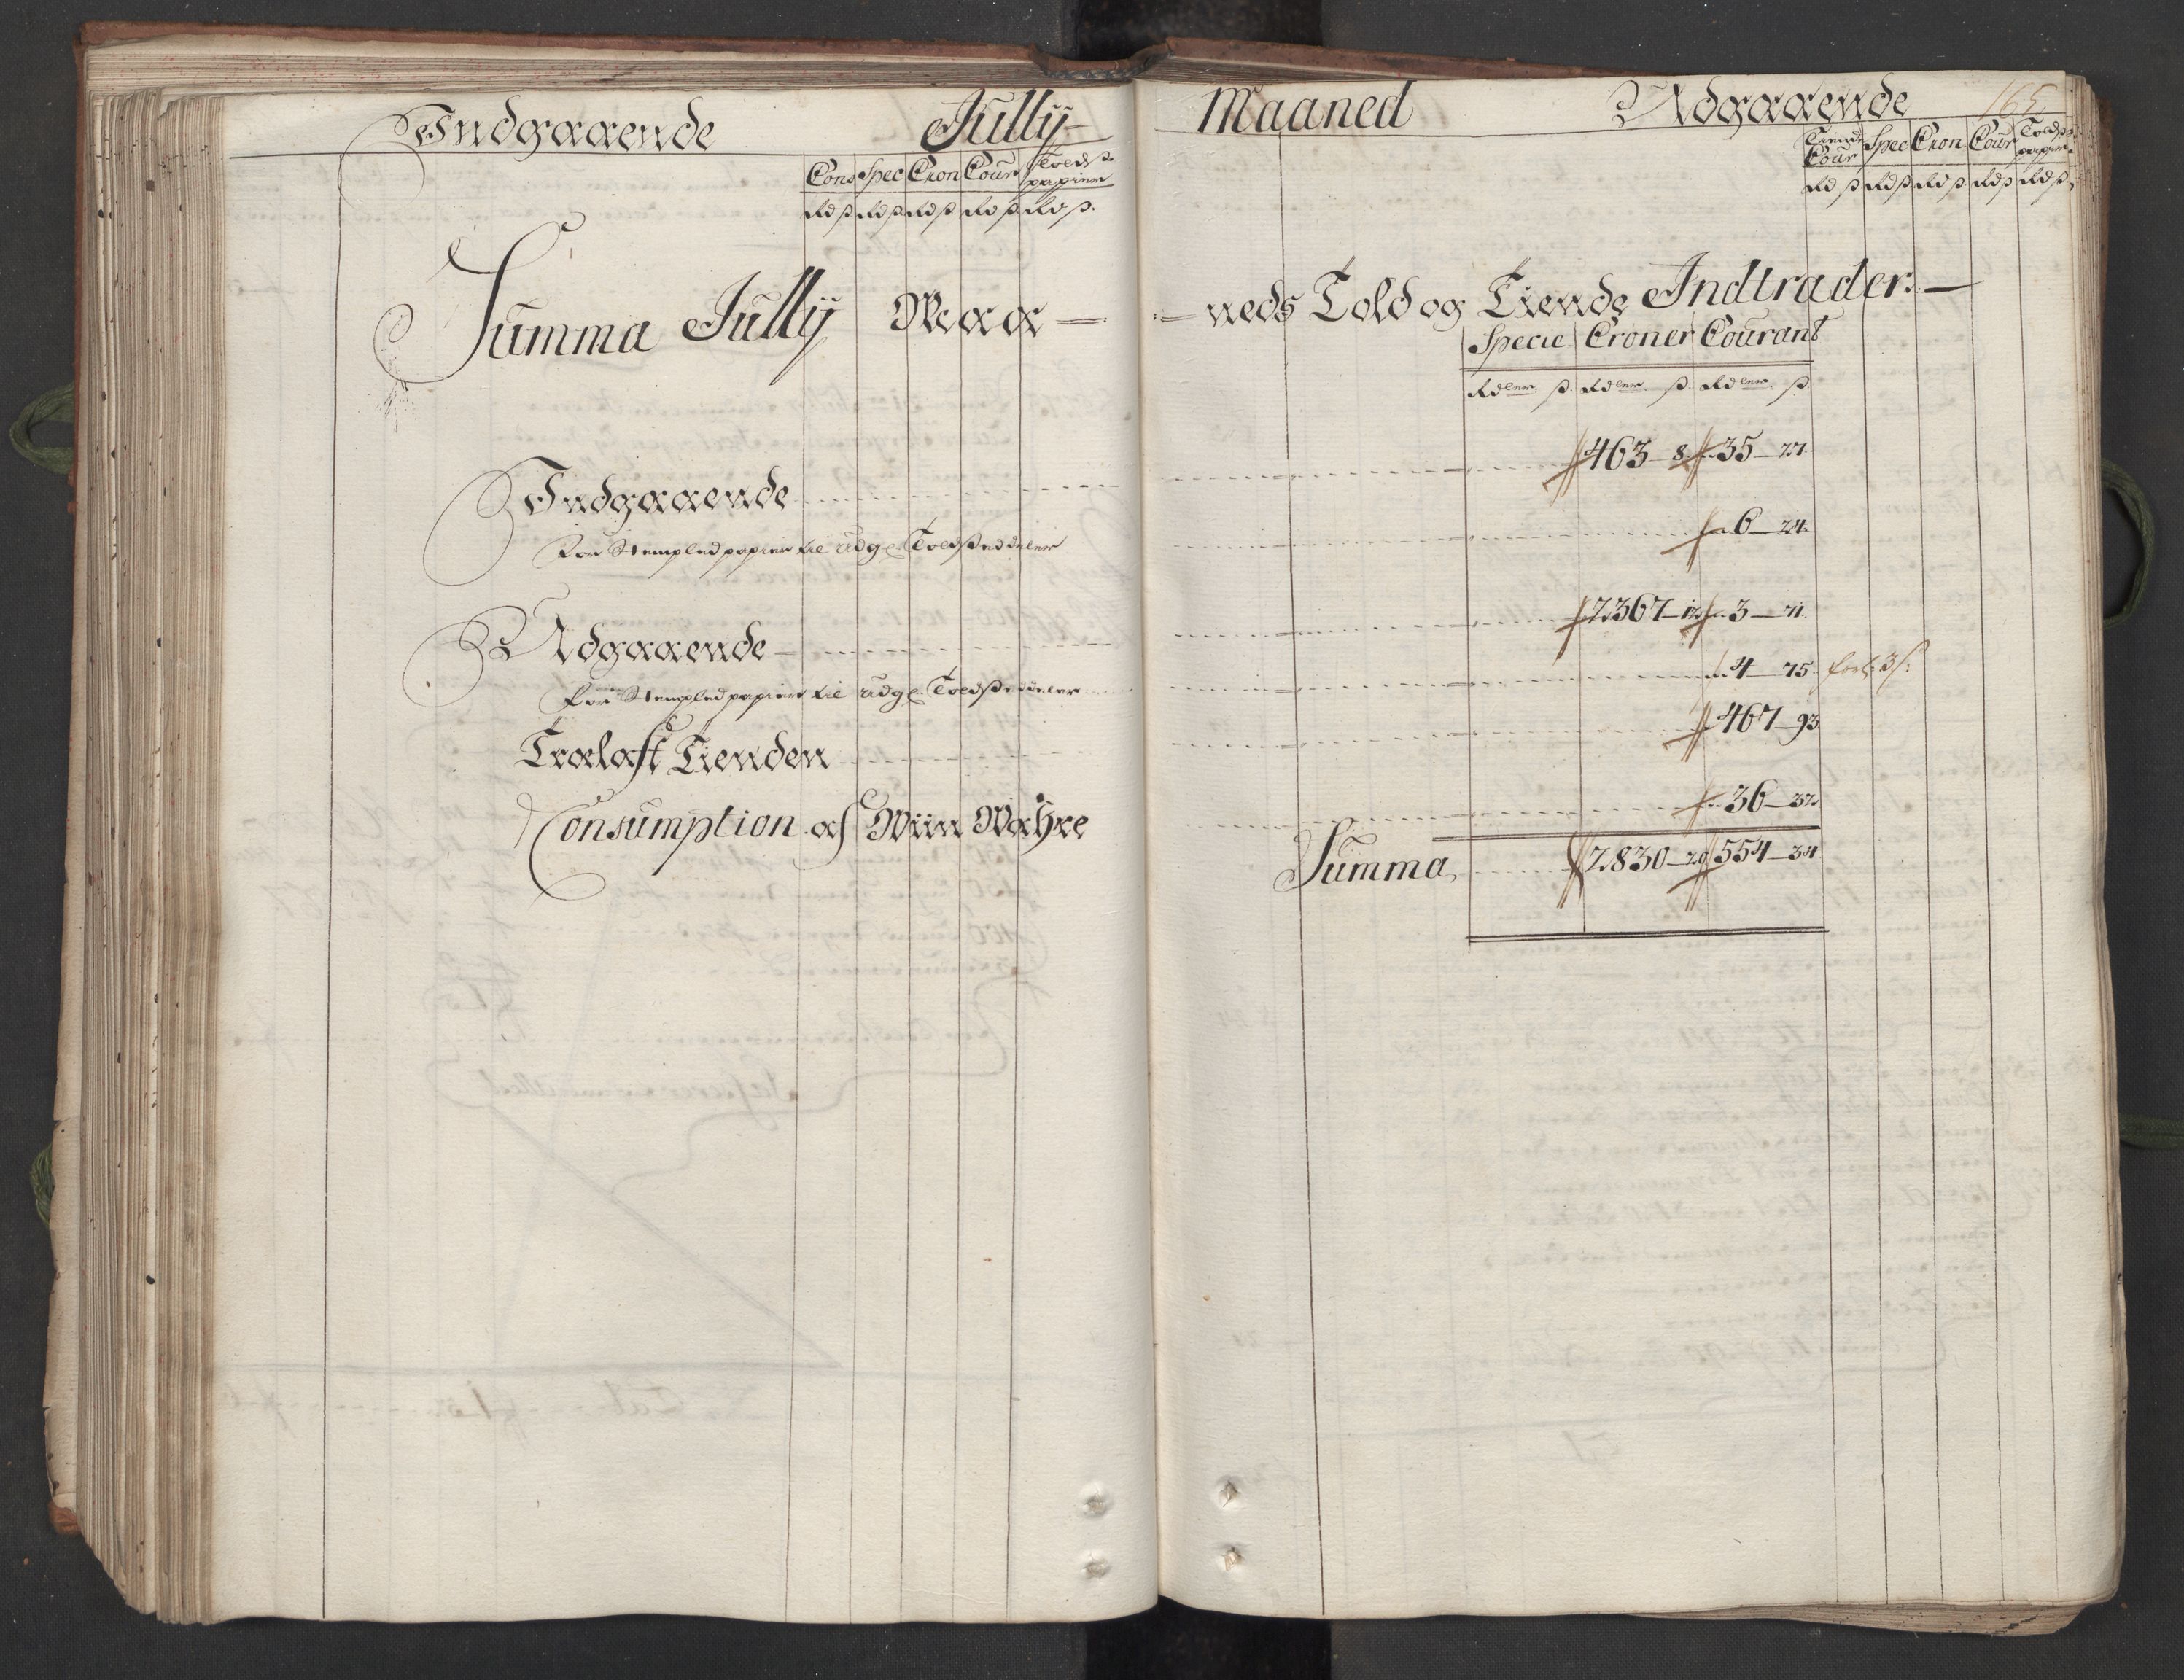 Indgaaende Jullÿ Maaned Udgaaende 165
Cons Spec Cron Cour Told ß. papier
Rd ß Rd ß Rd ß Rd ß Rd ß.
Tiende Cour Spec Cron Cour Told ß papier
Rd ß Rd ß Rd ß Rd ß Rd ß
Summa Jullÿ Maa — neds Told og Tiende Indtrader. —
Specie Croner Courant
Rdler ß. Rdler ß. Rdler ß.
Indgaaende 463 - 8 35 - 27.
For Stempled papier til udg. Toldßeddeler 6 - 24.
Udgaaende 2367 - 12 3 - 71.
For Stempled papier til udg. Toldßeddeler 4 - 75.
Tralast Tienden 467 - 93
Consumption af Wiin Wahre 36 - 32.
Summa, 2830 - 20 554 - 34